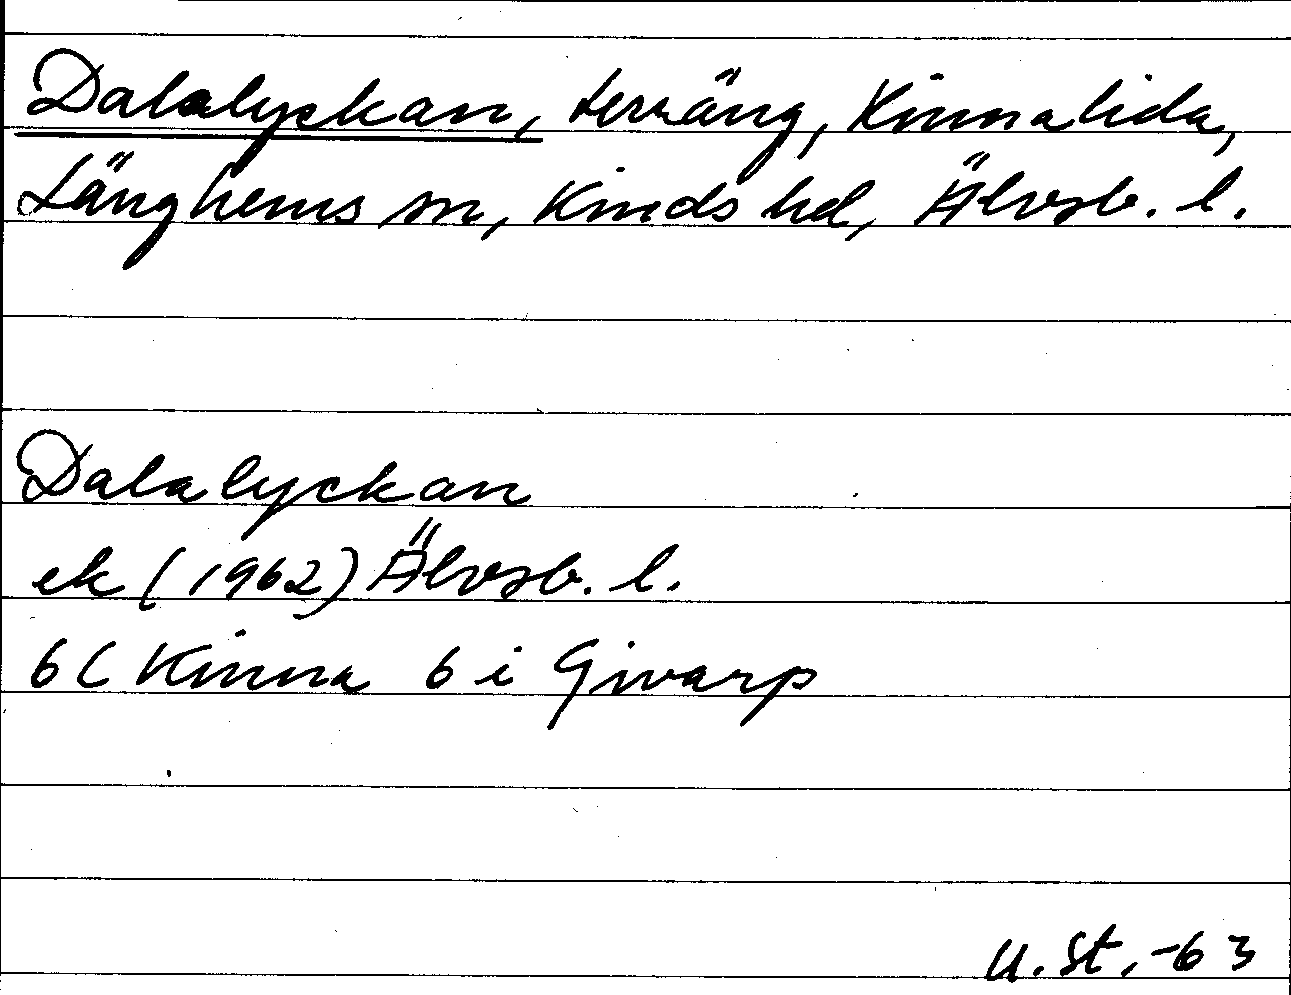 Dalalyckan, terräng, Kinnalida,
Länghems sn, Kinds hd, Älvsb. l.
Dalalyckan
ek (1962) Älvsb. l.
6 C Kinna 6 i Givarp
U. St. -63